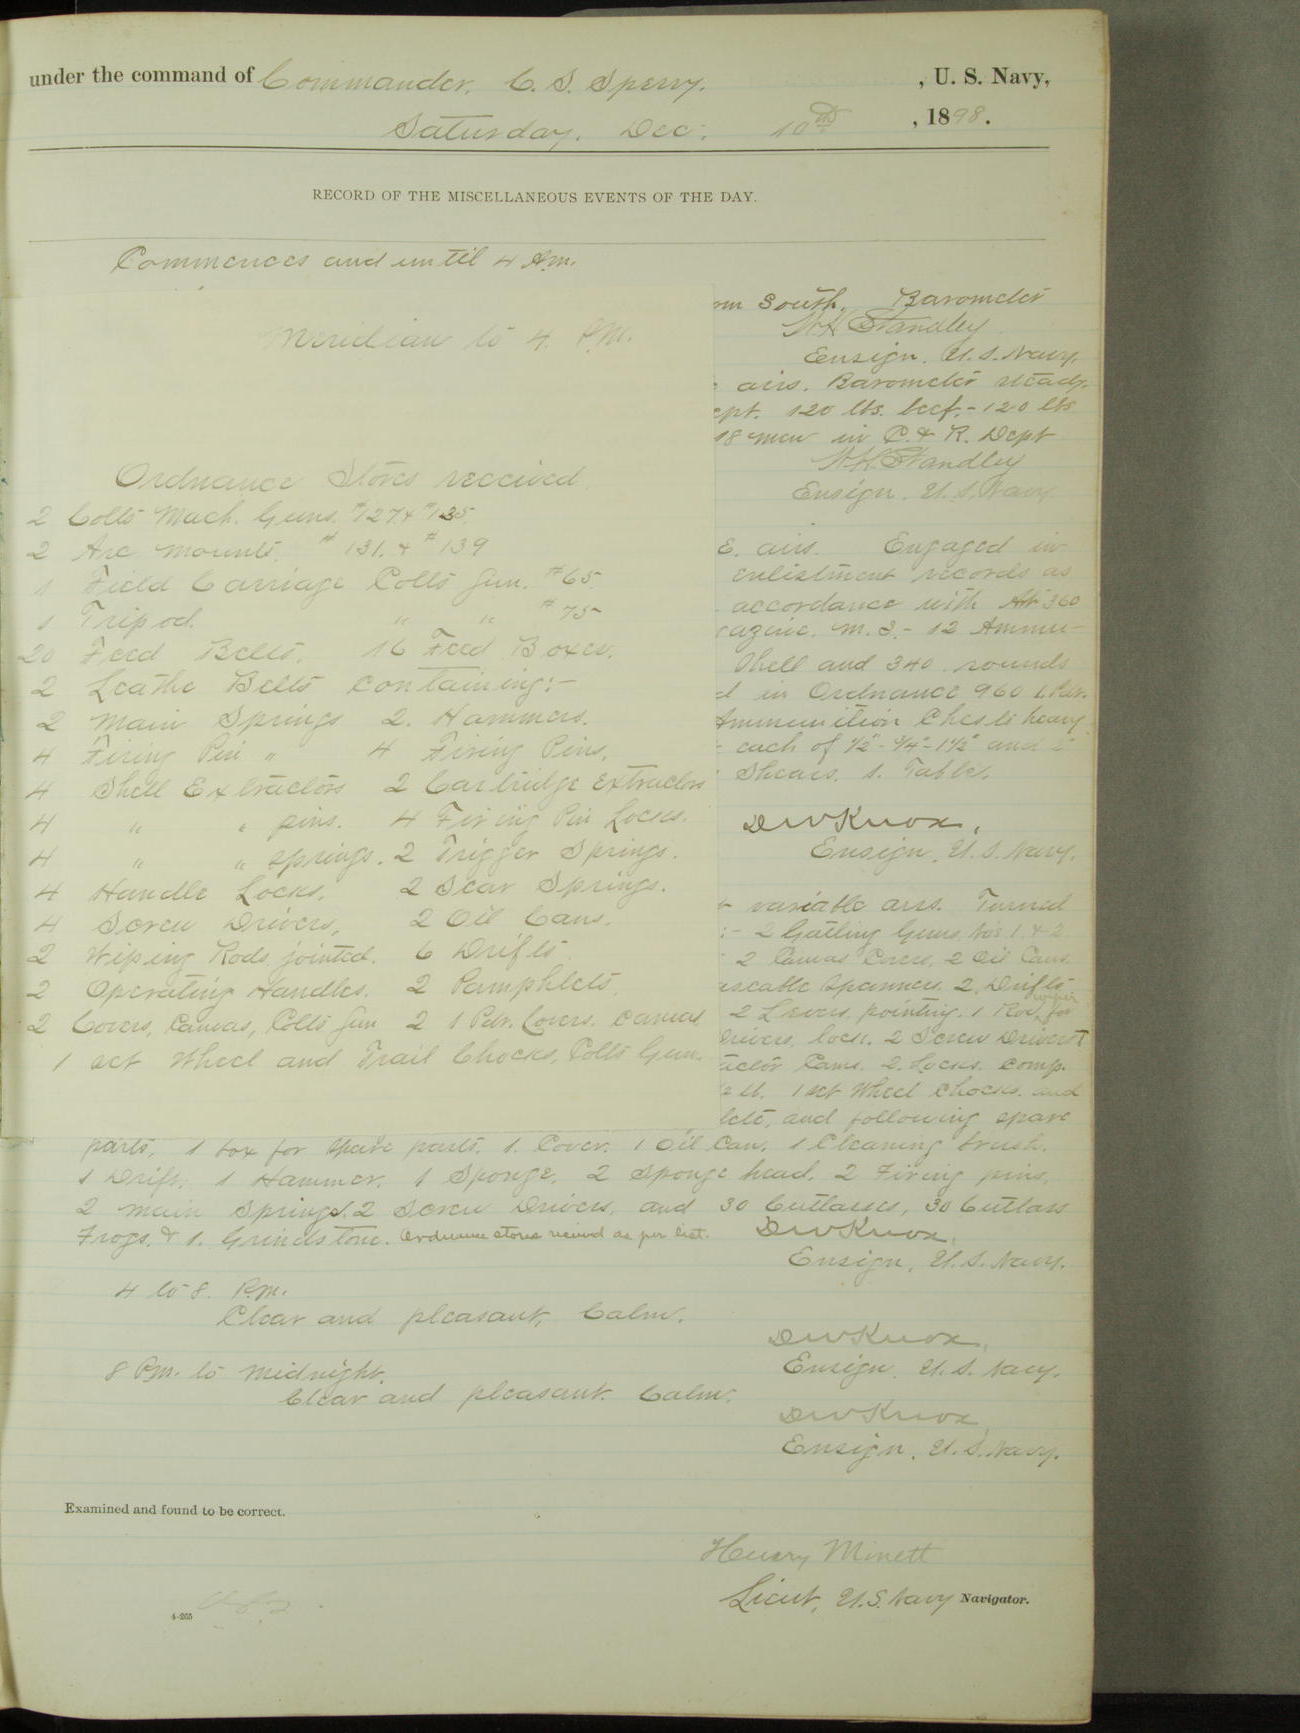 under the command of Commander. C. S. Sperry. , U. S. Navy,
Saturday. Dec. 10th , 1898.
RECORD OF THE MISCELLANEOUS EVENTS OF THE DAY.
Commences and until 4 A.m.
South. Barometer
W H Standley
Ensign. U. S. Navy.
airs. Barometer steady.
120 lbs. beef. - 120 lbs
18 men in C. & R. Dept
W. H. Standley
Ensign. U. S. Navy.
E. airs. Engaged in
enlistment records as
accordance with Art 360
M. S. - 12 Ammu-
Shell and 340 rounds
in Ordnance 960 1 Pdr.
Ammunition Chests heavy
each of 1/2" - 3/4" - 1 1/2" and 2"
Shears. 1. Table.
D W Knox.
Ensign. U. S. Navy.
variable airs. Turned
:- 2 Gatling Guns. Nos 1. & 2
2 Canvas Covers. 2 Oil Cans.
Spanners. 2. Drifts
2 Levers, pointing. 1 Rod, wiper for
lock. 2 Screw Drivers T
Cams. 2. Locks. comp.
lb. 1 set Wheel Chocks. and
and following spare
Meridian to 4. P.M.
Ordnance Stores received
2 Colts Mach. Guns. #127 & #135.
2 Arc Mounts. # 131. & # 139
1 Field Carriage Colts Gun. #65
1 Tripod. " " # 75
20 Feed Belts. 16 Feed Boxes.
2 Leathe Belts containing:-
2 Main Springs 2. Hammers.
4 Firing Pin " 4 Firing Pins.
4 Shell Extractors 2 Cartridge Extractors
4 " " pins. 4 Firing Pin Locks.
4 " " springs. 2 Trigger Springs.
4 Handle Locks. 2 Sear Springs.
4 Screw Drivers, 2 Oil Cans.
2 Wiping Rods, jointed. 6 Drifts
2 Operating Handles. 2 Pamphlets.
2 Covers, Canvas, Colts Gun 2 1 Pdr. Covers. canvas
1 set Wheel and Trail Chocks, Colts Gun.
parts, 1 box for spare parts. 1. Cover. 1 Oil Can. 1 Cleaning brush.
1 Drift. 1 Hammer. 1 Sponge. 2 Sponge head. 2 Firing pins.
2 main Springs. 2 Screw Drivers. and 30 Cutlasses, 30 Cutlass
Frogs. & 1. Grindstone. Ordnance stores received as per list. D W Knox.
Ensign, U. S. Navy.
4 to 8. P.M.
Clear and pleasant. Calm.
D W Knox.
Ensign. U. S. Navy.
8 P.M. to midnight.
Clear and pleasant. Calm.
D W Knox
Ensign. U. S. Navy.
Examined and found to be correct.
Henry Minett
Lieut, U. S. Navy Navigator.
4-265